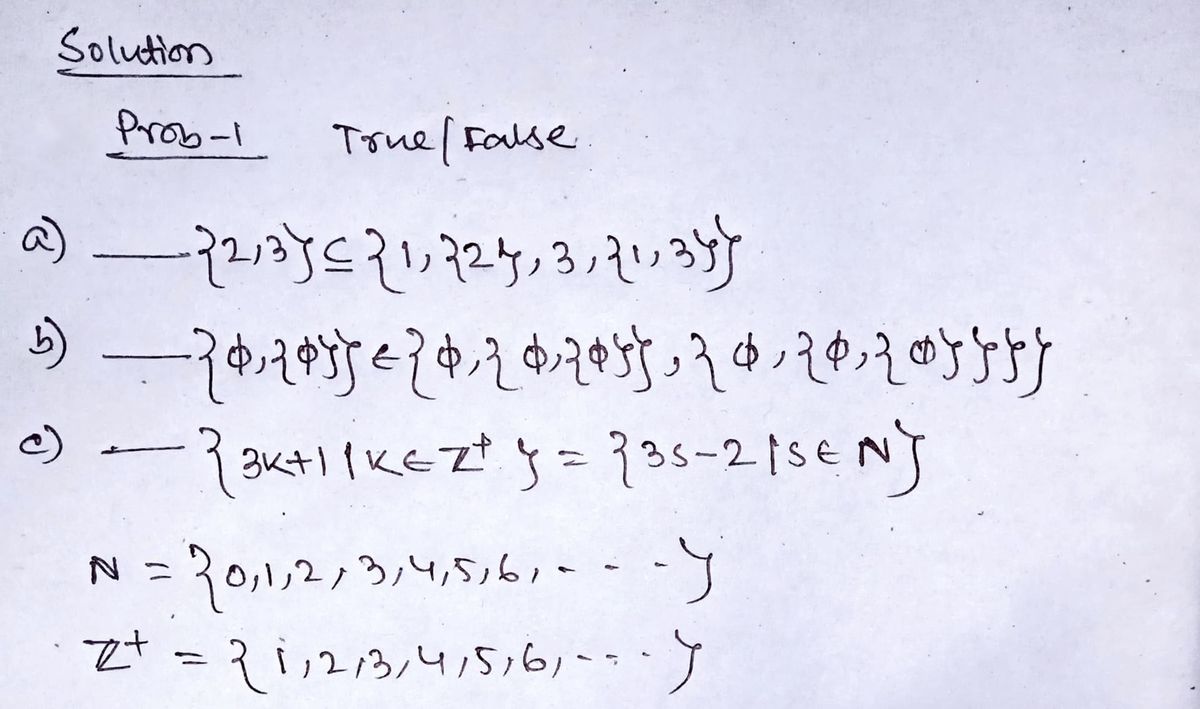 Solution
Prob-1 True/False
a) — {2,3} ⊆ {1, {2}, 3, {1,3}}
b) — {ϕ, {ϕ}} ∈ {ϕ, {ϕ, {ϕ}}, {ϕ, {ϕ, {ϕ}}}}
c) — {3K+1 | K ∈ Z⁺} = {3S-2 | S ∈ N}
N = {0,1,2,3,4,5,6, - - - -}
Z⁺ = {1,2,3,4,5,6, - - - -}